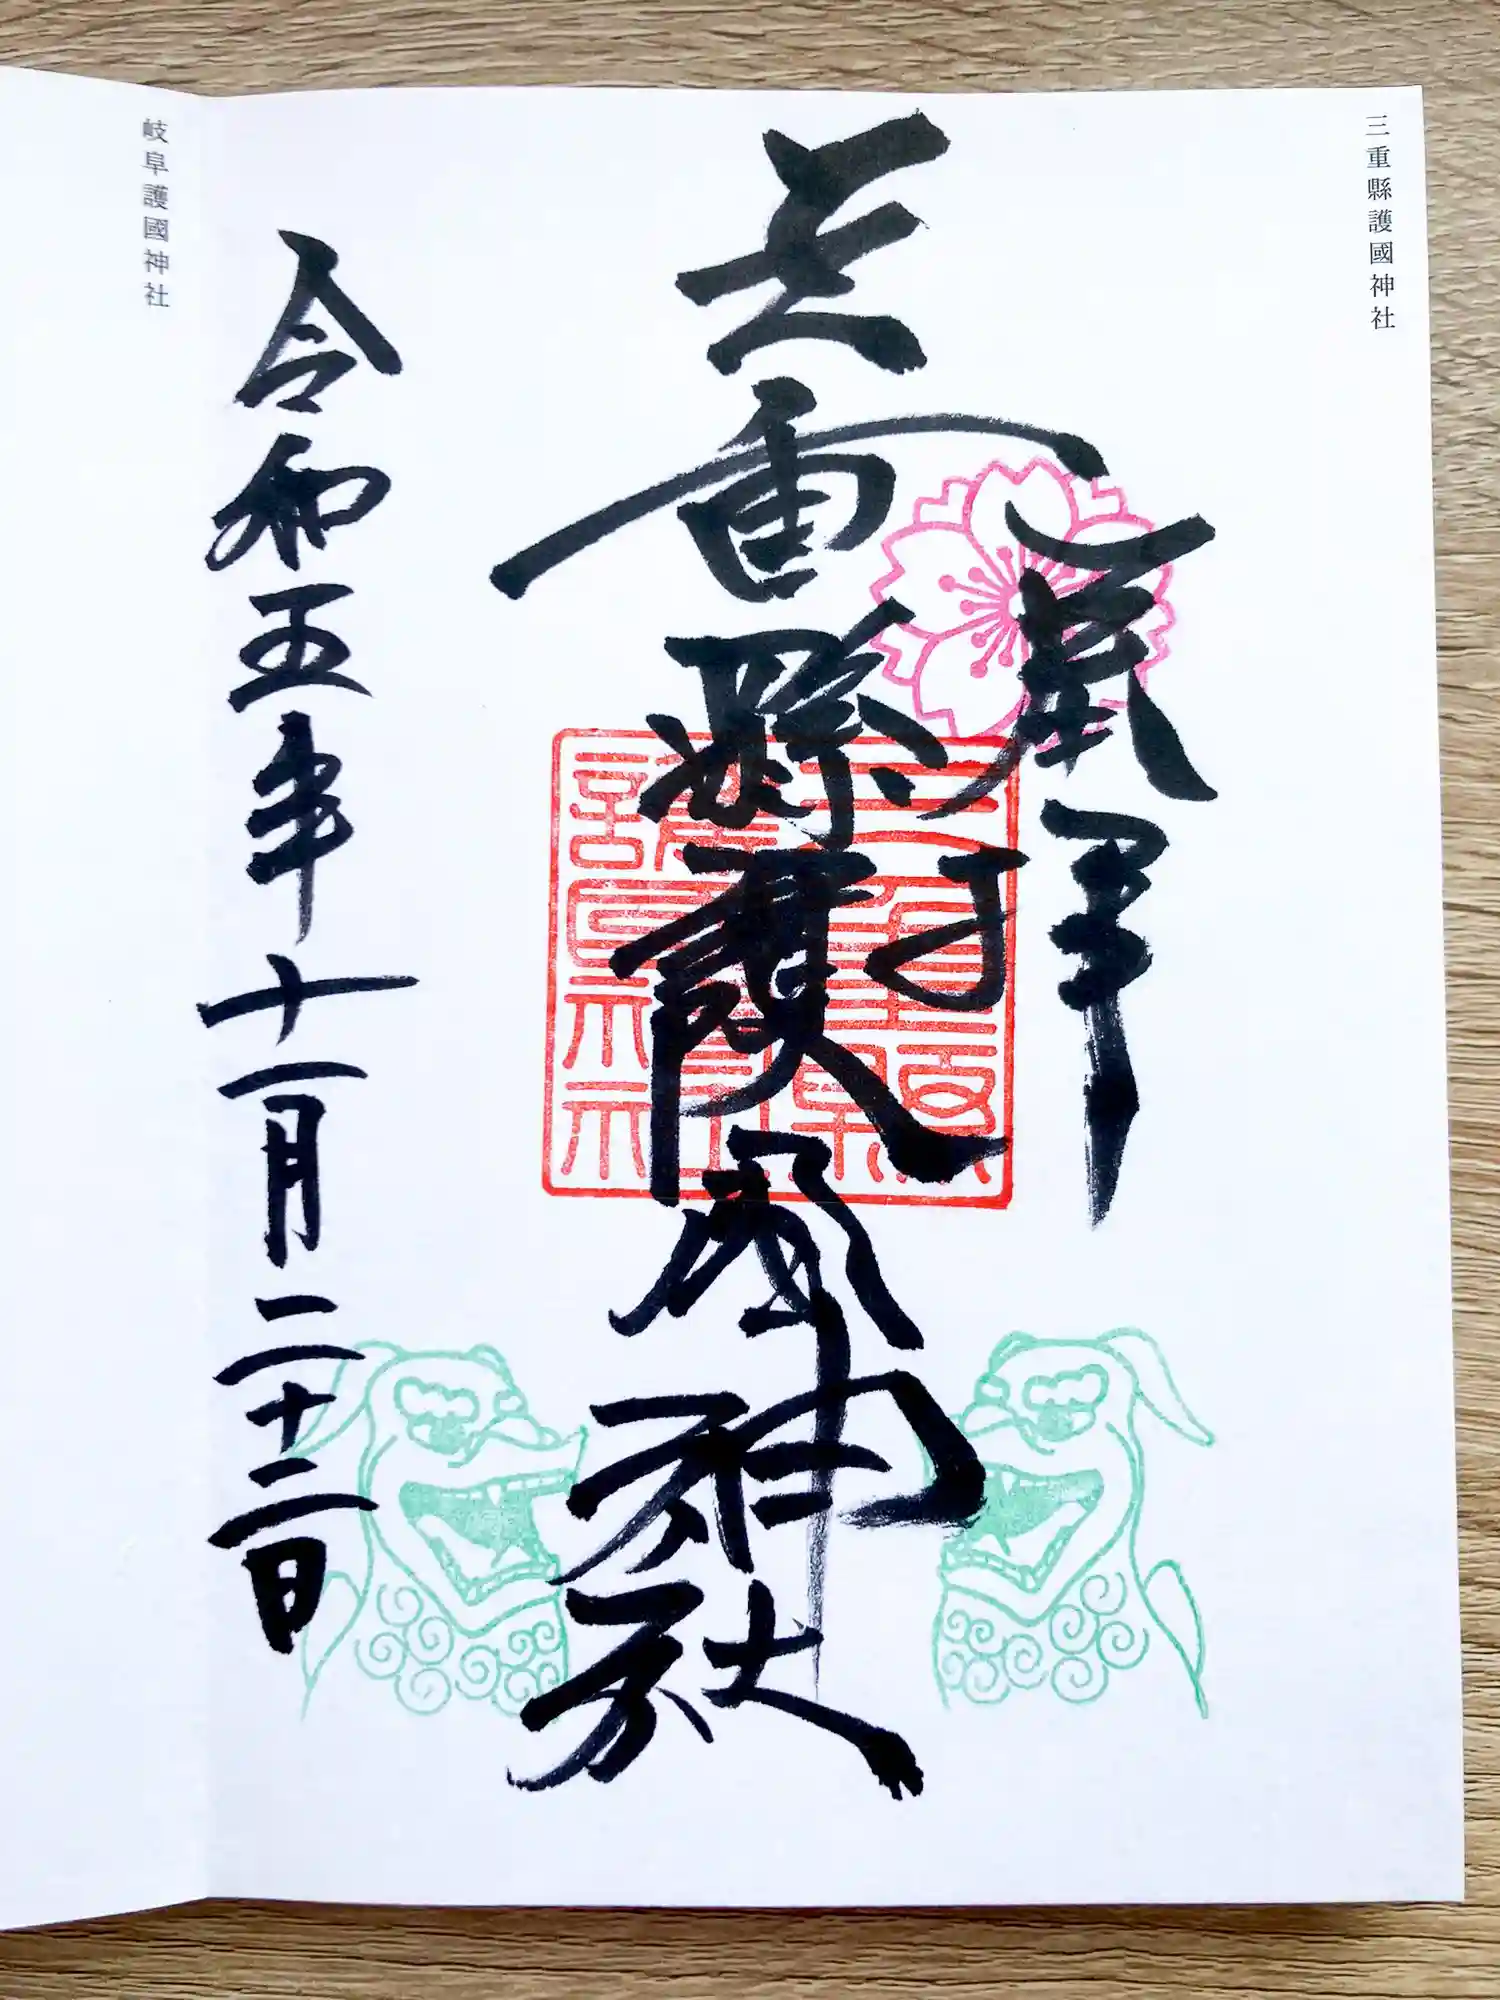 三重縣護國神社
奉拝
三重縣護國神社
三重縣護國神社
令和五年十一月二十二日
岐阜護國神社